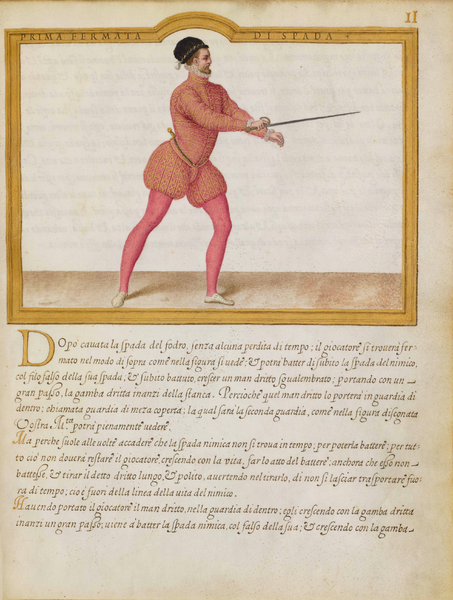 11
PRIMA FERMATA DI SPADA
Dopo cavata la spada del fodro, senza alcuna perdita di tempo; il giocatore si trouerà fer-
mato nel modo di sopra come nella figura si uedè; & potrà batter di subito la spada del nimico,
col filo falso della sua spada; & subito battuto, crescer un man dritto sgualembrato; portando con un
gran passo, la gamba dritta inanzi della stanca. Percioche quel man dritto lo porterà in guardia di
dentro; chiamata guardia di meza coperta; la qual sarà la seconda guardia, come nella figura disegnata
Vostra M.tà potrà pienamente uedere.
Ma perche suole alle uolte accadere che la spada nimica non si troua in tempo; per poterla battere; per tut-
to cio non douerà restare il giocatore, crescendo con la vita, far lo atto del battere; anchora che esso non
battesse, & tirar il detto dritto lungo, & polito, auertendo nel tirarlo, di non si lasciar trasportare fuo-
ra di tempo; cio è fuori della linea della vita del nimico.
Hauendo portato il giocatore il man dritto, nella guardia di dentro; egli crescendo con la gamba dritta
inanzi un gran passo; uiene à batter la spada nimica, col falso della sua; & crescendo con la gamba-